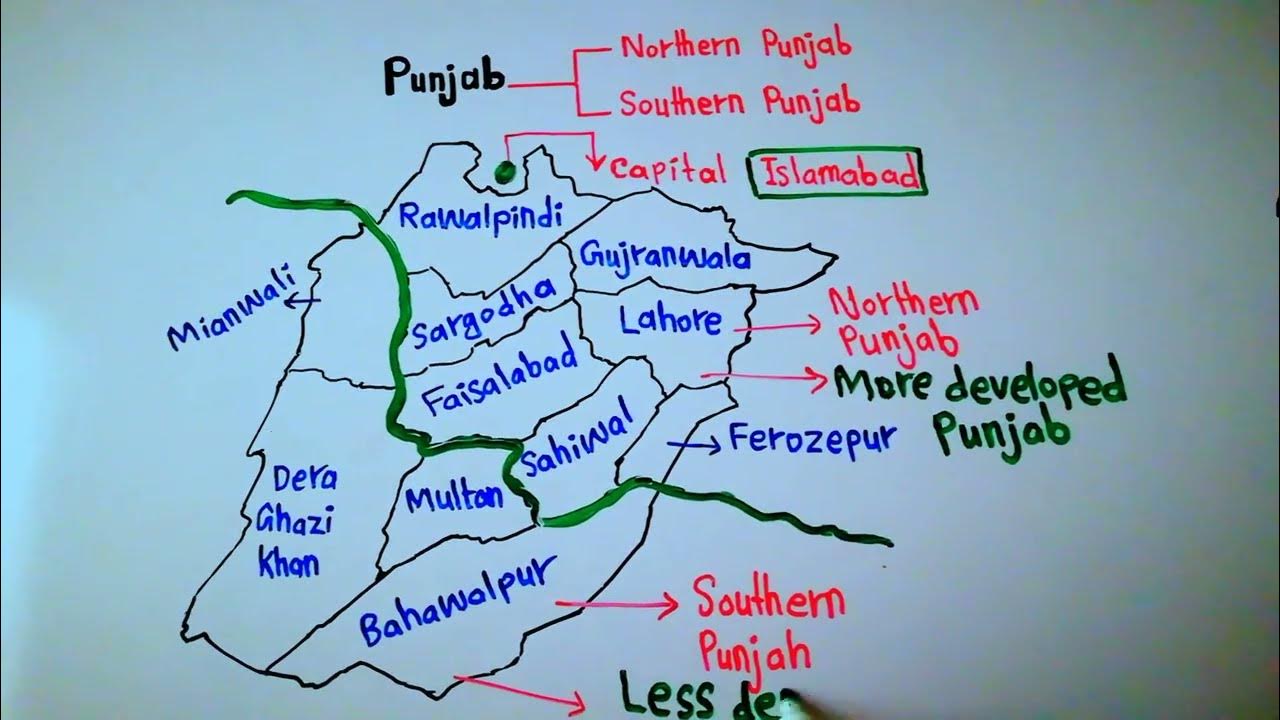 Northern Punjab
Punjab
Southern Punjab
Capital Islamabad
Rawalpindi
Gujranwala
Mianwali
Sargodha
Lahore
Northern
Punjab
Faisalabad
More developed
Punjab
Sahiwal
Ferozepur
Dera
Ghazi
Khan
Multan
Bahawalpur
Southern
Punjah
Less de